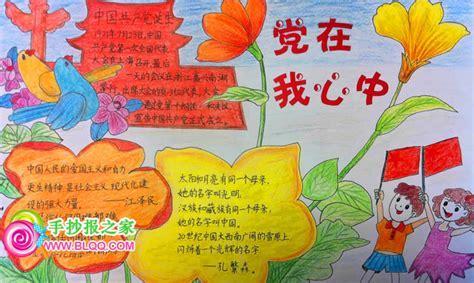 党在
我心中
中国共产党诞生
1921年7月23日,中国
共产党第一次全国代表
大会在上海召开,最后
一天的会议在浙江嘉兴南湖
举行,出席大会的
宣告中国共产党正式成立。
中国人民的爱国主义和自力
更生精神是社会主义现代化建
设的强大力量。
——江泽民
太阳和月亮有同一个母亲,
她的名字叫光明,
汉族和藏族有同一个母亲,
她的名字叫中国。
20世纪中国大西南广阔的雪原上,
闪烁着一个光辉的名字
——孔繁森。
手抄报之家
www.BLQQ.COM